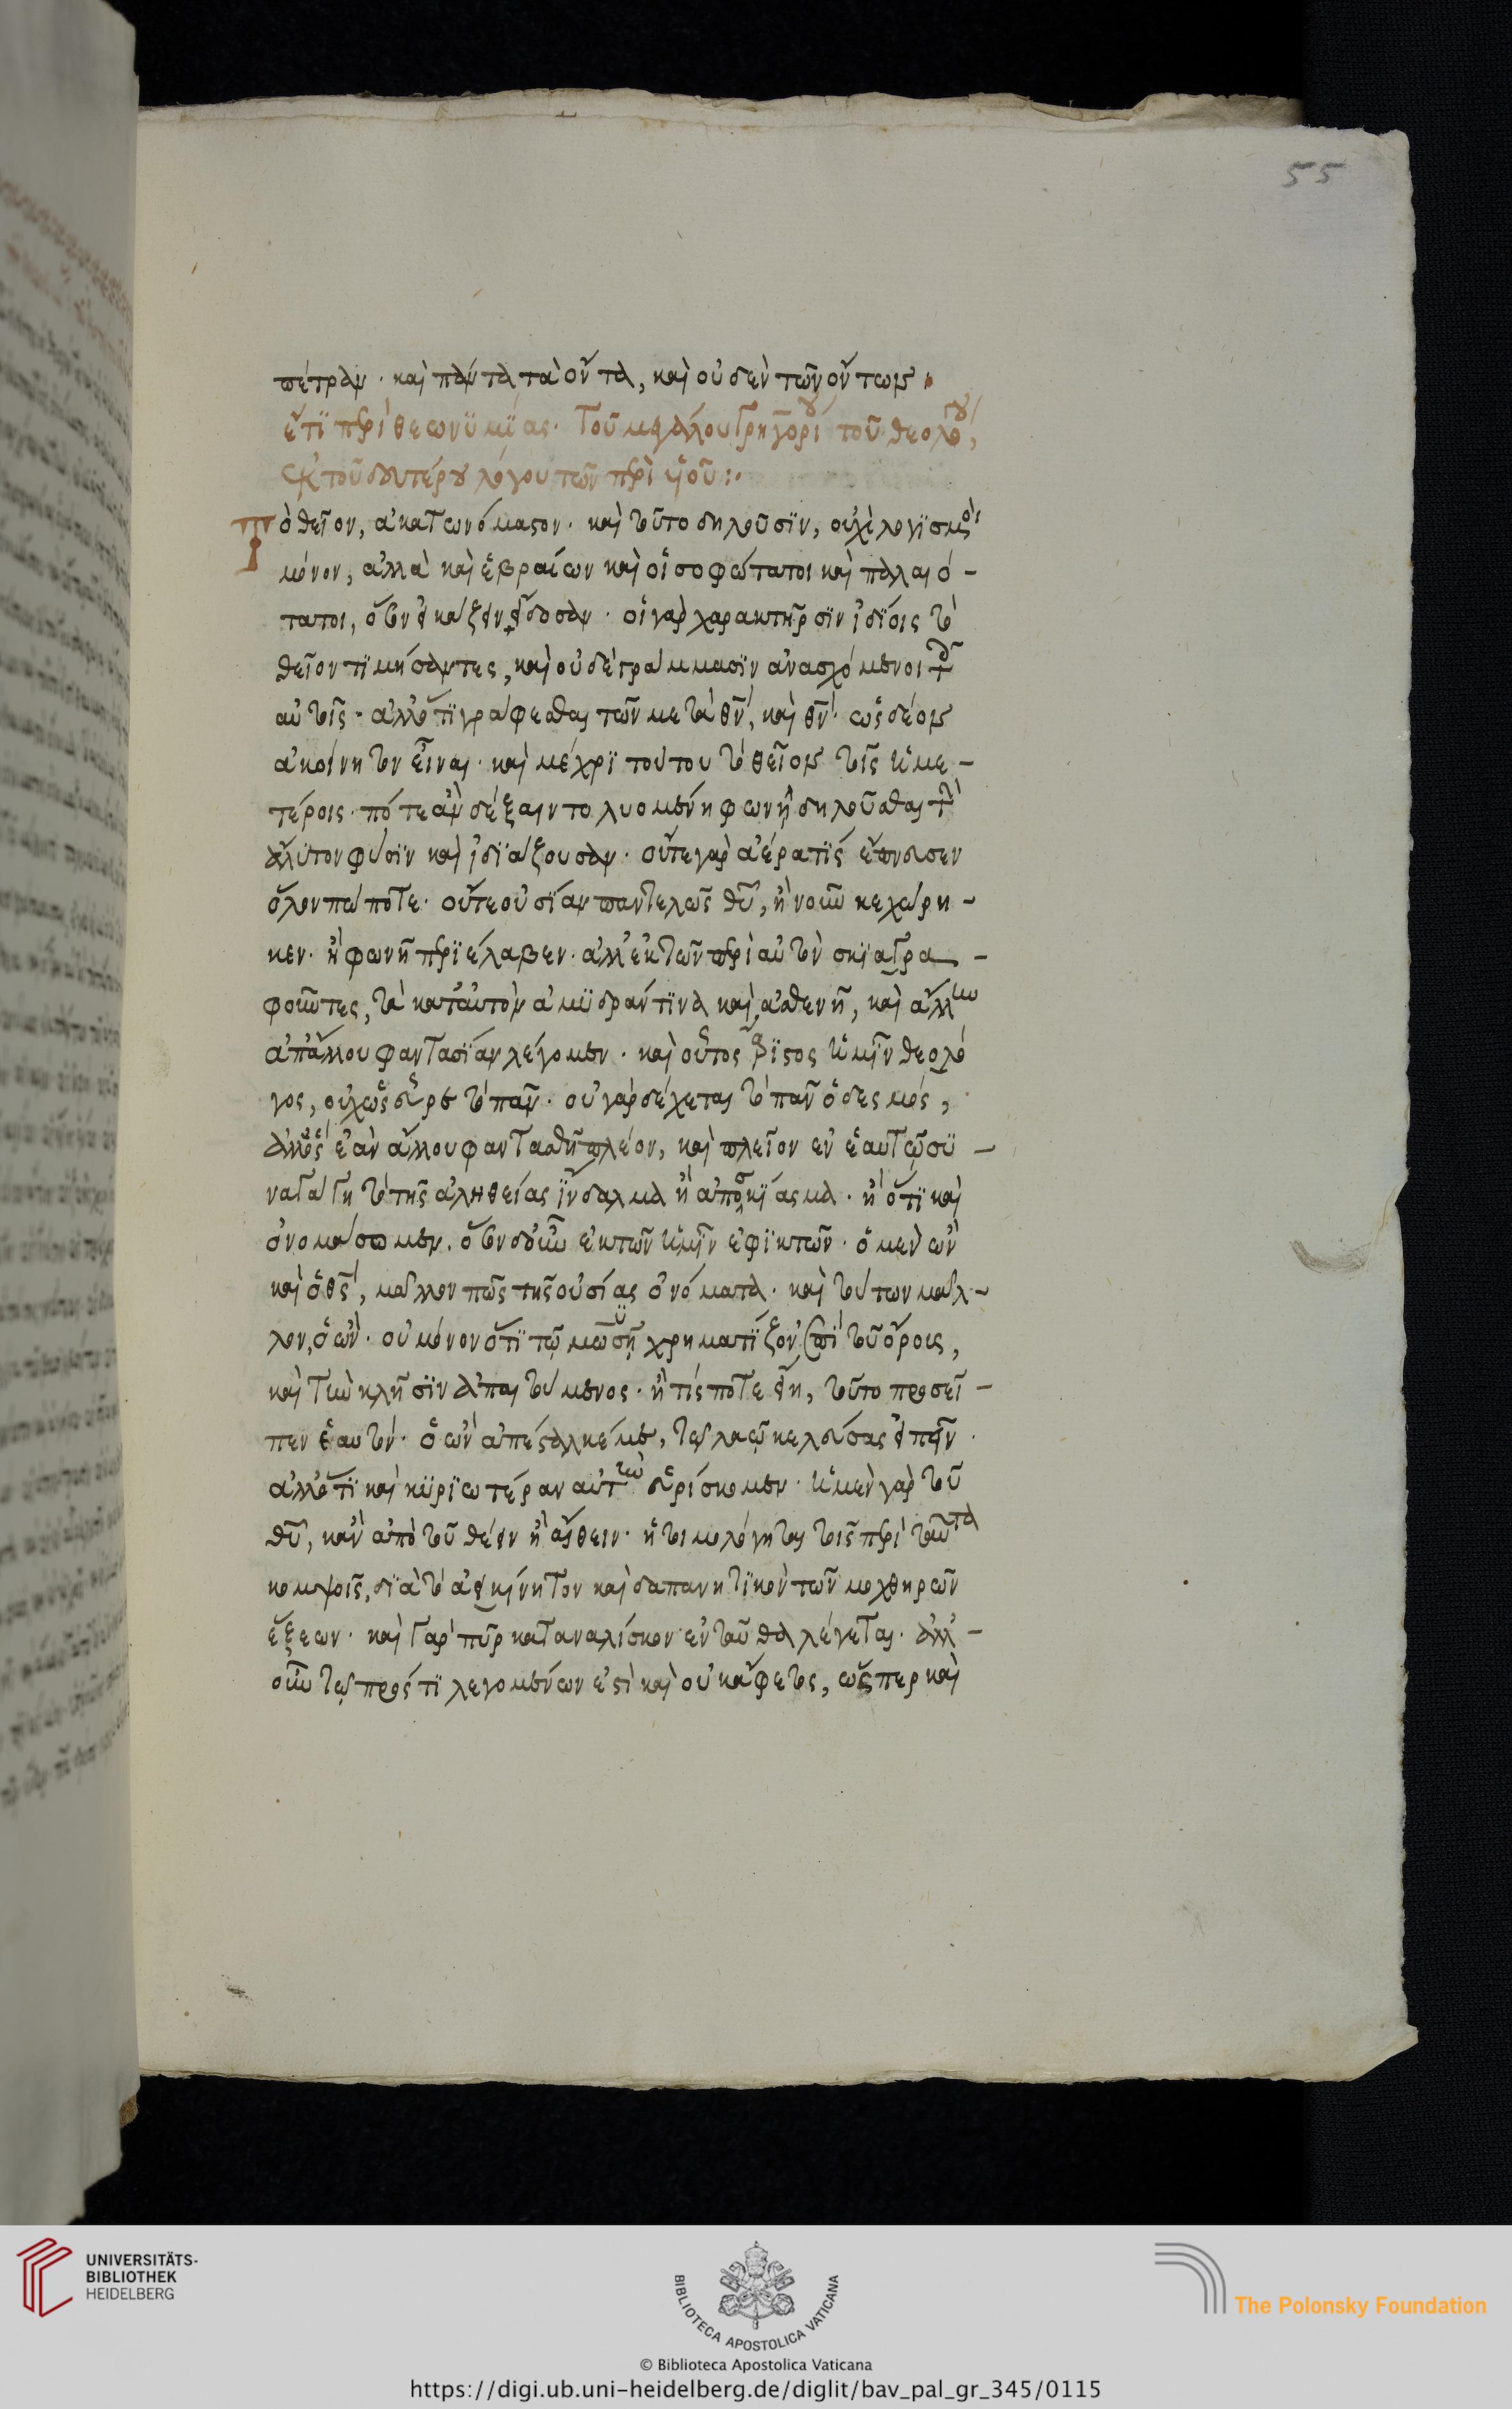 55
πέτραν· καὶ πάντα τὰ ὄντα, καὶ οὐδὲν τῶν ὄντων·
ἔτι περὶ θεωνυμίας· τοῦ μεγάλου Γρηγορίου τοῦ θεολόγου,
ἐκ τοῦ δευτέρου λόγου τῶν περὶ υἱοῦ:·
Τὸ θεῖον, ἀκατωνόμαστον· καὶ τοῦτο δηλοῦσιν, οὐχὶ λογισμοὶ
μόνον, ἀλλὰ καὶ ἑβραίων καὶ οἱ σοφώτατοι καὶ παλαιό-
τατοι, ὅσον εἰκάζειν ἔδοσαν· οἱ γὰρ χαρακτῆρσιν ἰδίοις τὸ
θεῖον τιμήσαντες, καὶ οὐδὲ γράμμασιν ἀνασχόμενοι τοῖς
αὐτοῖς· ἄλλό τι γράφεσθαι τῶν μετὰ θν, καὶ θν· ὡς δέον
ἀκοίνητον εἶναι· καὶ μέχρι τούτου τὸ θεῖον τοῖς ἡμε-
τέροις· πότε ἂν δέξαιντο λυομένῃ φωνῇ δηλοῦσθαι τὴν
ἄλυτον φύσιν καὶ ἰδιάζουσαν· οὔτε γὰρ ἀέρα τίς ἔπνευσεν
ὅλον πώποτε· οὔτε οὐσίαν παντελῶς θυ, ἢ νοῦς κεχώρη-
κεν· ἢ φωνὴ περιέλαβεν· ἀλλ' ἐκ τῶν περὶ αὐτὸν σκιαγρα-
φοῦντες, τὰ κατ' αὐτὸν ἀμυδράν τινα καὶ ἀσθενῆ, καὶ ἄλλην
ἀπ' ἄλλου φαντασίαν λέγομεν· καὶ οὗτος ἄριστος ἡμῖν θεολό
γος, οὐχ ὡς εὗρε τὸ πᾶν· οὐ γὰρ δέχεται τὸ πᾶν ὁ δεσμός,
ἀλλ' ὃς ἐὰν ἄλλου φαντασθῇ πλέον, καὶ πλεῖον ἐν ἑαυτῷ συ-
ναγάγῃ τὸ τῆς ἀληθείας ἴνδαλμα ἢ ἀποσκίασμα· ἢ ὅτι καὶ
ὀνομάσωμεν. ὅσον δ' οὖν ἐκ τῶν ἡμῖν ἐφικτῶν· ὁ μὲν ὢν
καὶ ὁ θς, μᾶλλον πως τῆς οὐσίας ὀνόματα· καὶ τούτων μᾶλ-
λον, ὁ ὤν· οὐ μόνον ὅτι τῷ μωϋσῇ χρηματίζον ἐπὶ τοῦ ὄρους,
καὶ τὴν κλῆσιν ἀπαιτούμενος· ἥ τίς ποτε εἴη, τοῦτο προσεῖ-
πεν ἑαυτόν· ὁ ὢν ἀπέσταλκέ με, τῷ λαῷ κελεύσας εἰπεῖν·
ἀλλ' ὅτι καὶ κυριωτέραν αὐτὴν εὑρίσκομεν· ἡ μὲν γὰρ τοῦ
θυ, κἂν ἀπὸ τοῦ θέειν ἢ αἴθειν· ἡτοιμολόγηται τοῖς περὶ ταῦτα
κομψοῖς, διὰ τὸ ἀεικίνητον καὶ δαπανητικὸν τῶν μοχθηρῶν
ἕξεων· καὶ γὰρ πῦρ καταναλίσκον ἐντεῦθα λέγεται· ἀλλ'-
οὖν τῶν πρός τι λεγομένων ἐστὶ καὶ οὐκ ἄφετος, ὥσπερ καὶ
UNIVERSITÄTS-
BIBLIOTHEK
HEIDELBERG
BIBLIOTECA APOSTOLICA VATICANA
The Polonsky Foundation
© Biblioteca Apostolica Vaticana
https://digi.ub.uni-heidelberg.de/diglit/bav_pal_gr_345/0115